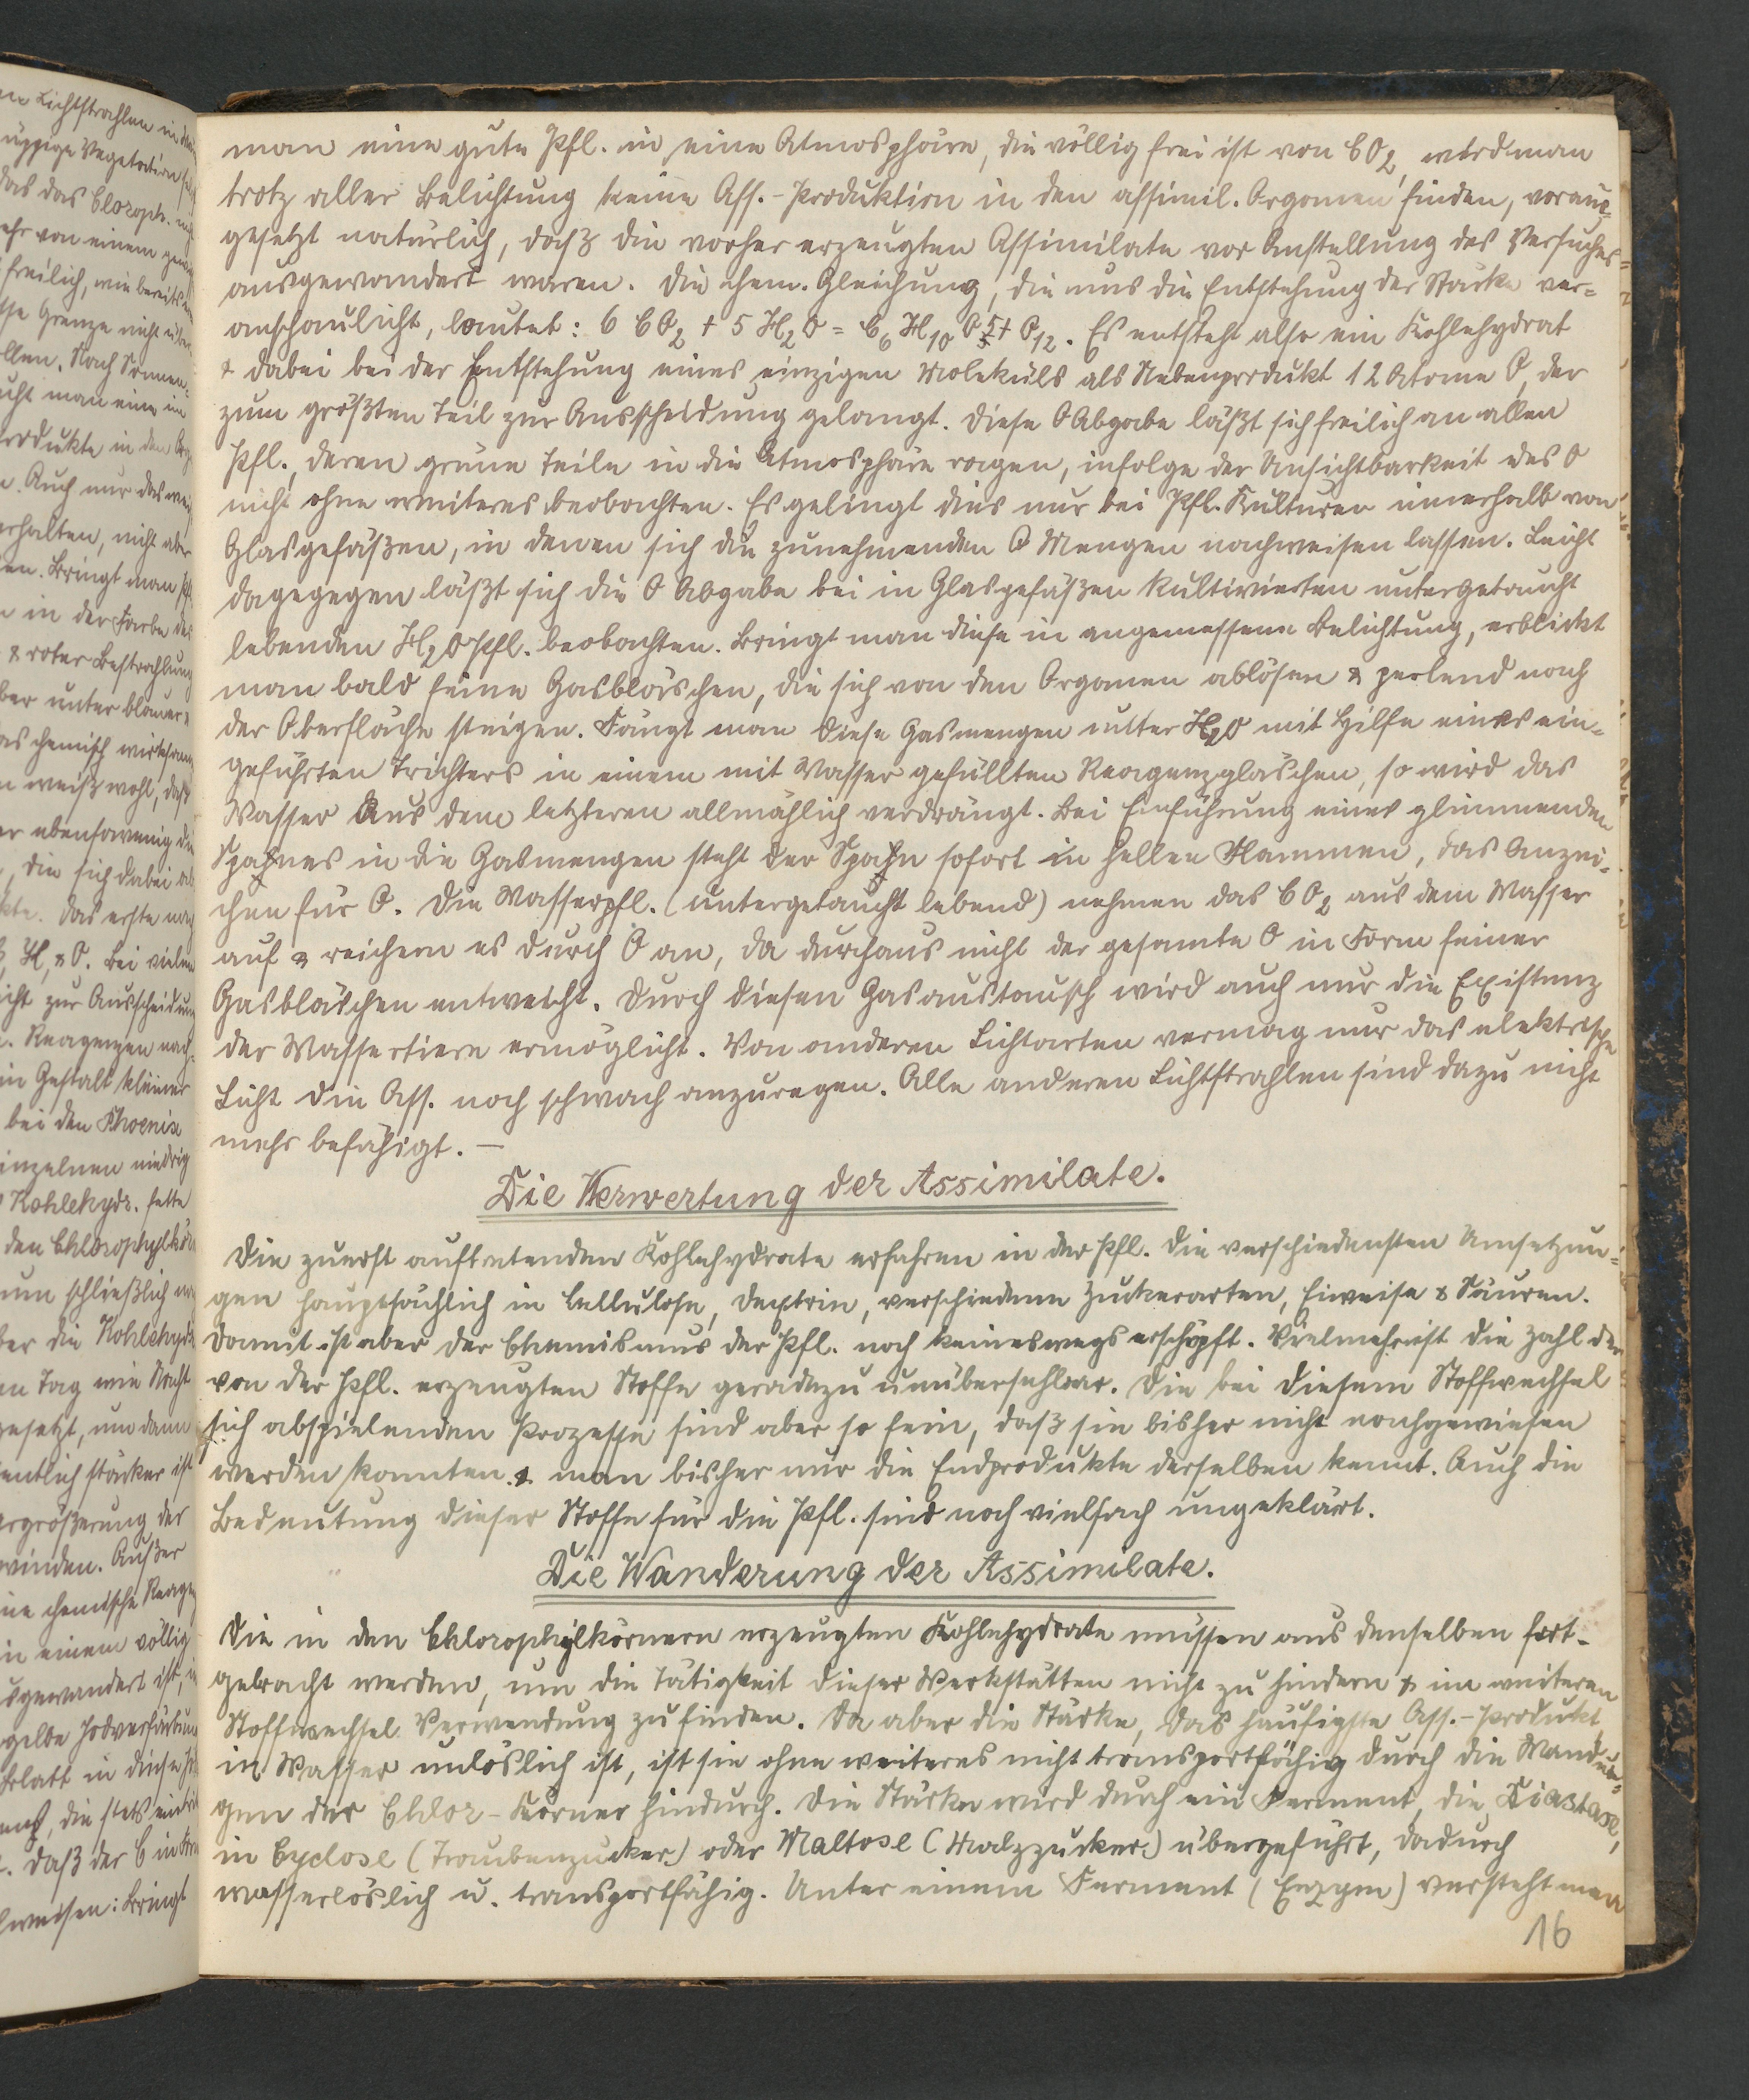 man eine gute Pfl. in eine Atmosphäre, die völlig frei ist von CO2, wird man
trotz aller Belichtung keine Ass.-Produktion in den assimil. Organen finden, voraus-
gesetzt natürlich, daß die vorher erzeugten Assimilate vor Anstellung des Versuches
ausgewandert waren. Die chem. Gleichung, die uns die Entstehung der Stärke ver-
anschaulicht, lautet: 6 CO2 + 5 H2O = C6 H10 O5 + O12. Es entsteht also ein Kohlehydrat
& dabei bei der Entstehung eines einzigen Moleküls als Nebenprodukt 12 Atome O, der
zum größten Teil zur Ausscheidung gelangt. Diese O Abgabe läßt sich freilich an allen
Pfl., deren grüne Teile in die Atmosphäre ragen, infolge der Unsichtbarkeit des O
nicht ohne weiteres beobachten. Es gelingt dies nur bei Pfl. Kulturen innerhalb von
Glasgefäßen, in denen sich die zunehmenden O Mengen nachweisen lassen. Leicht
dagegegen läßt sich die O Abgabe bei in Glasgefäßen kultivierten untergetaucht
lebenden H2O Pfl. beobachten. Bringt man diese in angemessene Belichtung, erblickt
man bald feine Gasbläschen, die sich von den Organen ablösen & perlend nach
der Oberfläche steigen. Fängt man diese Gasmengen unter H2O mit Hilfe eines ein-
geführten Trichters in einem mit Wasser gefüllten Reagenzgläschen, so wird das
Wasser aus dem letzteren allmählich verdrängt. Bei Einführung eines glimmenden
Spahnes in die Gasmengen steht der Spahn sofort in hellen Flammen, das Anzei-
chen für O. Die Wasserpfl. (untergetaucht lebend) nehmen das CO2 aus dem Wasser
auf & reichern es durch O an, da durchaus nicht der gesamte O in Form feiner
Gasbläschen entweicht. Durch diesen Gasaustausch wird auch nur die Existenz
der Wassertiere ermöglicht. Von anderen Lichtarten vermag nur das elektrische
Licht die Ass. noch schwach anzuregen. Alle anderen Lichtstrahlen sind dazu nicht
mehr befähigt. —
Die Verwertung der Assimilate.
Die zuerst auftretenden Kohlehydrate erfahren in der Pfl. die verschiedensten Umsetzun-
gen hauptsächlich in Cellulose, Dextrin, verschiedene Zuckerarten, Eiweise & Säuren.
Damit ist aber der Chemismus der Pfl. noch keineswegs erschöpft. Vielmehr ist die Zahl der
von der Pfl. erzeugten Stoffe geradezu unübersehbar. Die bei diesem Stoffwechsel
sich abspielenden Prozesse sind aber so fein, daß sie bisher nicht nachgewiesen
werden konnten & man bisher nur die Endprodukte derselben kennt. Auch die
Bedeutung dieser Stoffe für die Pfl. sind noch vielfach ungeklärt.
Die Wanderung der Assimilate.
Die in den Chlorophylkörnern erzeugten Kohlehydrate müssen aus denselben fort-
gebracht werden, um die Tätigkeit dieser Werkstätten nicht zu hindern & im weiteren
Stoffwechsel Verwendung zu finden. Da aber die Stärke, das häufigste Ass.-Produkt
in Wasser unlöslich ist, ist sie ohne weiteres nicht transportfähig durch die Wandun-
gen der Chlor-Körner hindurch. Die Stärke wird durch ein Ferment, die Diastase,
in Cyclose (Traubenzucker) oder Maltose (Malzzucker) übergeführt, dadurch
wasserlöslich u. transportfähig. Unter einem Ferment (Enzym) versteht man
16